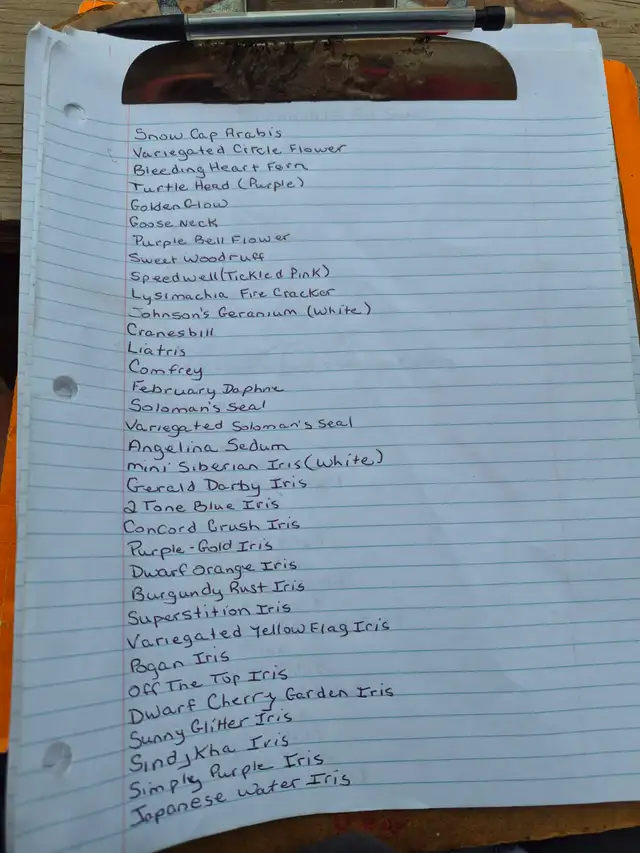 Snow Cap Arabis
Variegated Circle Flower
Bleeding Heart Fern
Turtle Head (Purple)
Golden Glow
Goose Neck
Purple Bell Flower
Sweet Woodruff
Speedwell (Tickled Pink)
Lysimachia Fire Cracker
Johnson's Geranium (White)
Cranesbill
Liatris
Comfrey
February Daphne
Soloman's Seal
Variegated Soloman's Seal
Angelina Sedum
mini Siberian Iris (White)
Gerald Darby Iris
2 Tone Blue Iris
Concord Crush Iris
Purple-Gold Iris
Dwarf Orange Iris
Burgundy Rust Iris
Superstition Iris
Variegated Yellow Flag Iris
Pagan Iris
Off The Top Iris
Dwarf Cherry Garden Iris
Sunny Glitter Iris
Sindjkha Iris
Simply Purple Iris
Japanese Water Iris